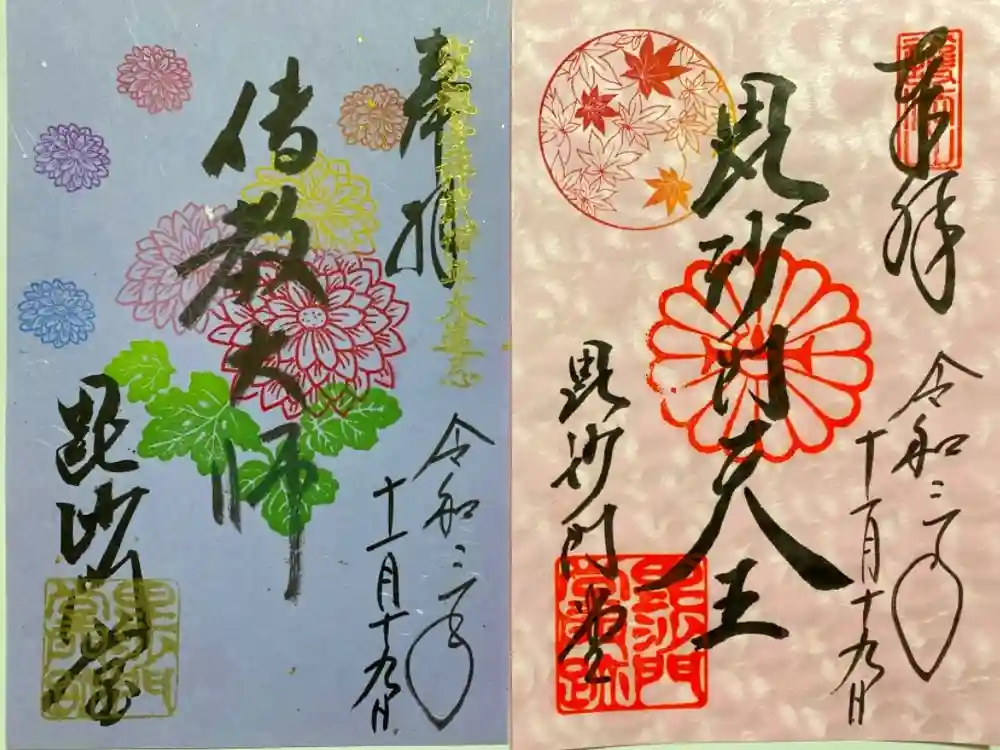 奉拝
令和三年
十一月十九日
傳教大師
毘沙門堂
奉拝
令和三年
十一月十九日
毘沙門天王
毘沙門堂